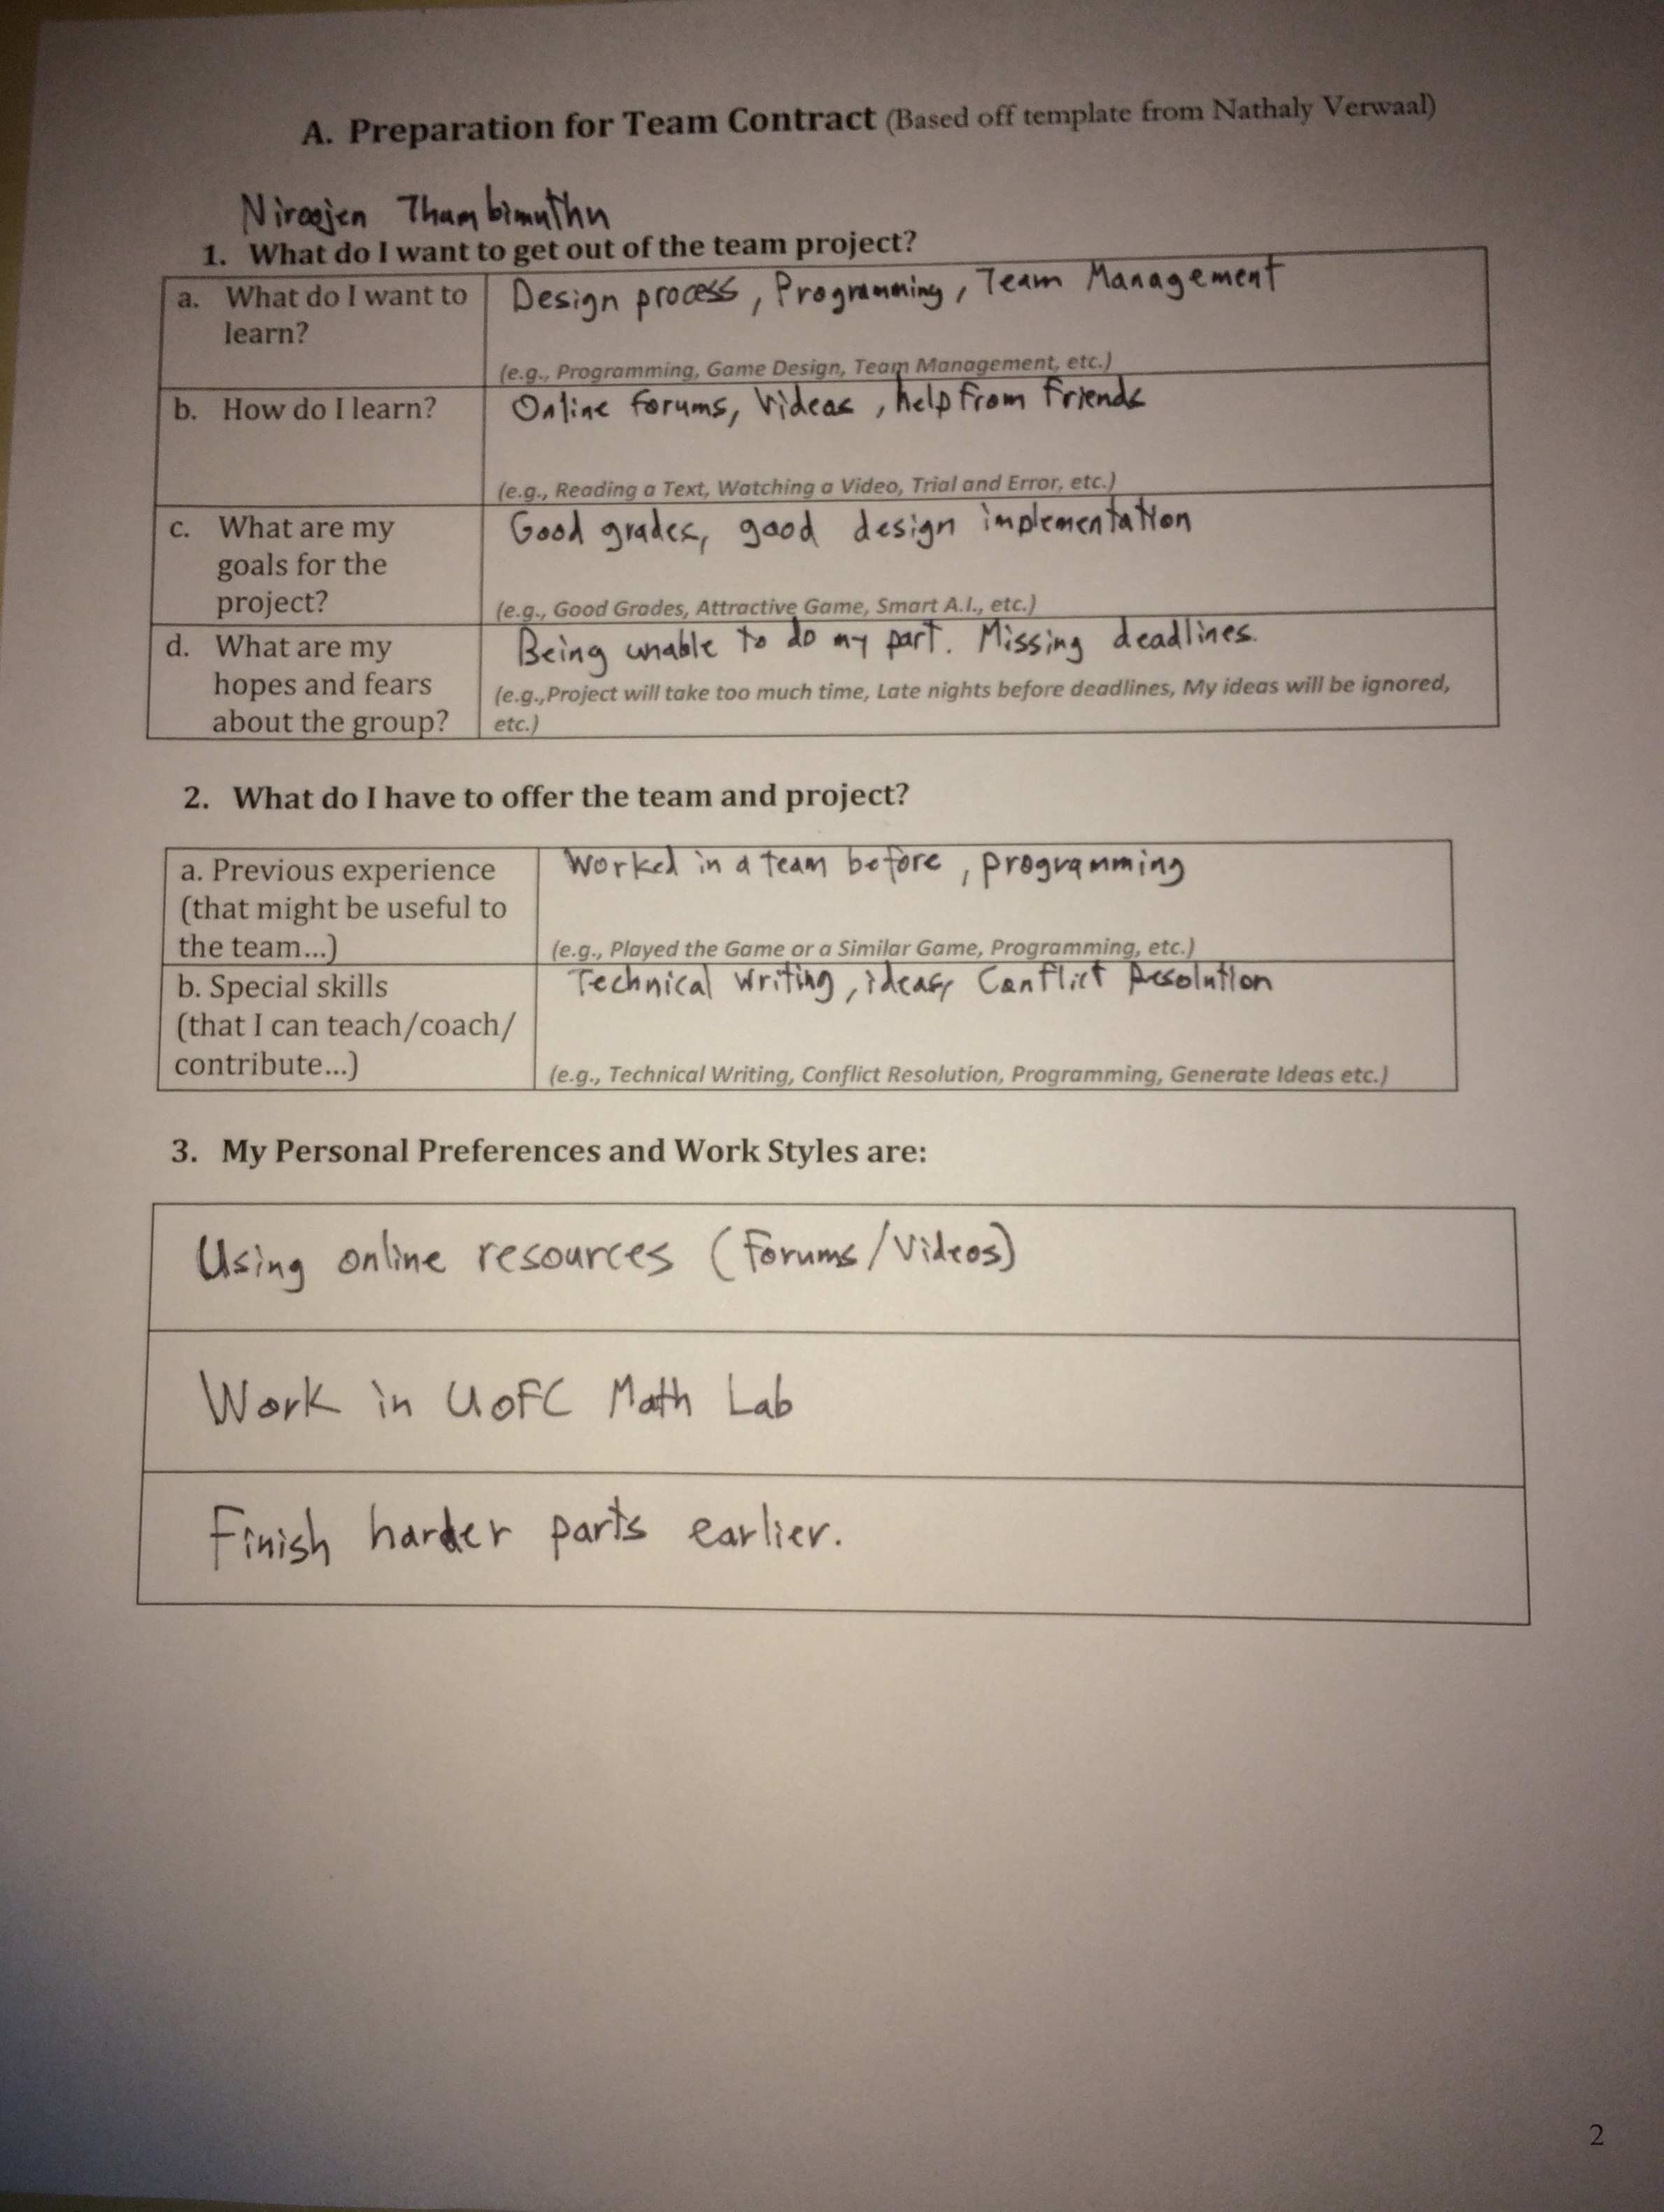 A. Preparation for Team Contract (Based off template from Nathaly Verwaal)
Niroojen Thambimuthu
1. What do I want to get out of the team project?
a. What do I want to learn?
Design process, Programming, Team Management
(e.g., Programming, Game Design, Team Management, etc.)
b. How do I learn?
Online forums, Videos, help from friends
(e.g., Reading a Text, Watching a Video, Trial and Error, etc.)
c. What are my goals for the project?
Good grades, good design implementation
(e.g., Good Grades, Attractive Game, Smart A.I., etc.)
d. What are my hopes and fears about the group?
Being unable to do my part. Missing deadlines.
(e.g.,Project will take too much time, Late nights before deadlines, My ideas will be ignored,
etc.)
2. What do I have to offer the team and project?
a. Previous experience
(that might be useful to
the team...)
Worked in a team before, programming
(e.g., Played the Game or a Similar Game, Programming, etc.)
b. Special skills
(that I can teach/coach/
contribute...)
Technical Writing, ideas, Conflict Resolution
(e.g., Technical Writing, Conflict Resolution, Programming, Generate Ideas etc.)
3. My Personal Preferences and Work Styles are:
Using online resources (Forums/Videos)
Work in UofC Math Lab
Finish harder parts earlier.
2